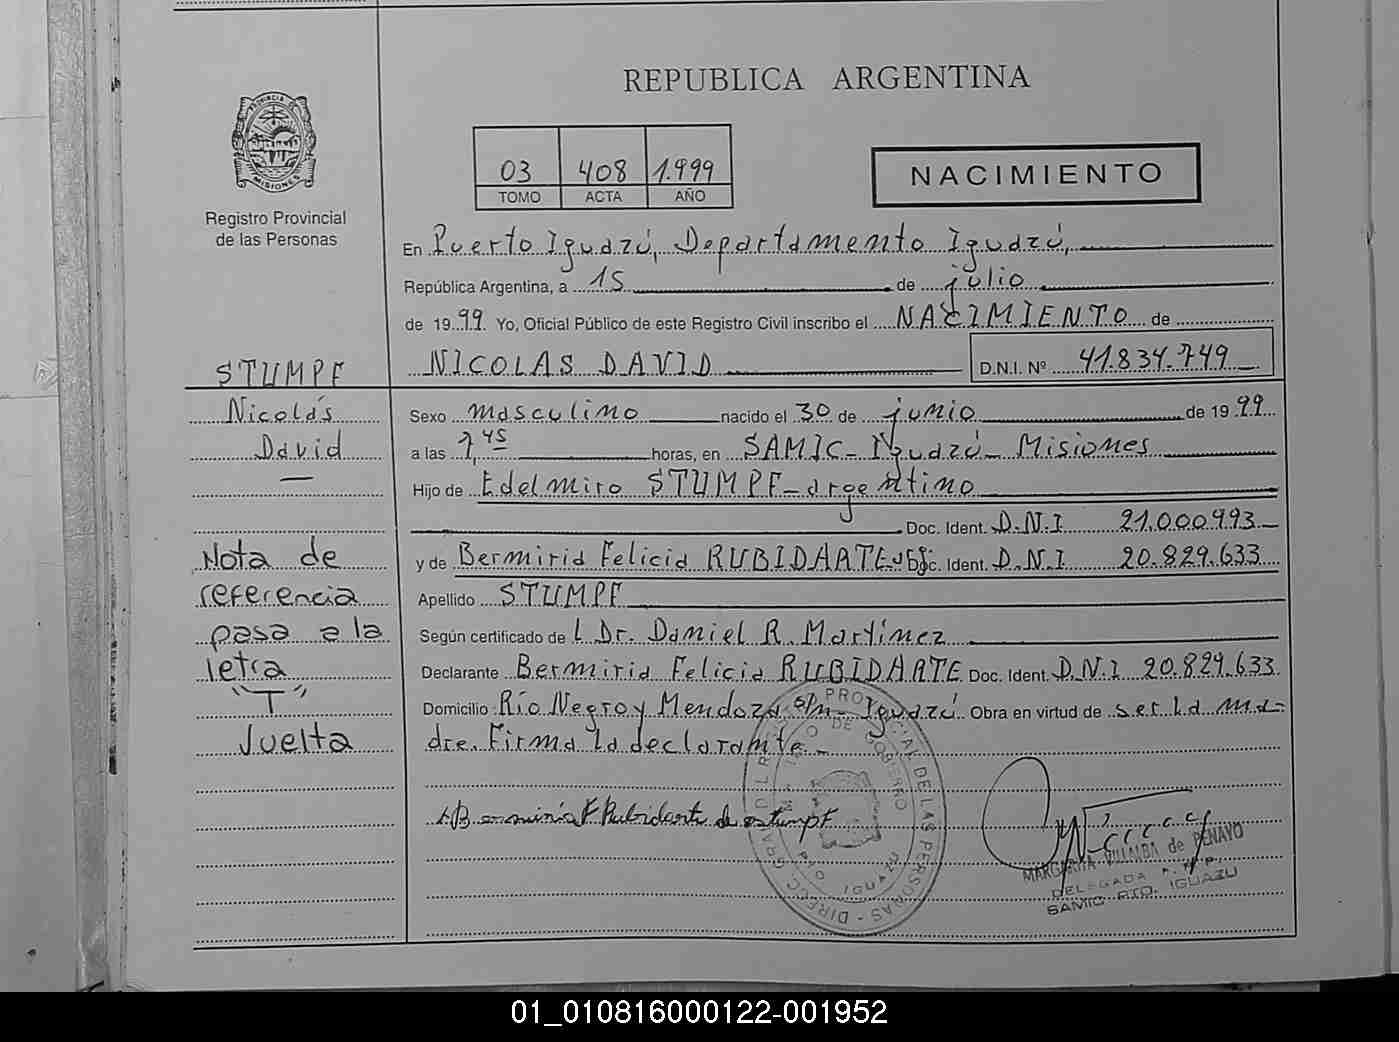 REPUBLICA ARGENTINA
PROVINCIA DE
MISIONES
Registro Provincial
de las Personas
03 408 1.999
TOMO ACTA AÑO
NACIMIENTO
En Puerto Iguazú, Departamento Iguazú,
República Argentina, a 15 de julio
de 1999 Yo, Oficial Público de este Registro Civil inscribo el NACIMIENTO de
NICOLAS DAVID D.N.I. Nº 41.834.749
STUMPF
Nicolás
David
Sexo masculino nacido el 30 de junio de 1999
a las 7,45 horas, en SAMIC - Iguazú - Misiones
Hijo de Edelmiro STUMPF - argentino
Doc. Ident. D.N.I 21.000.993
y de Bermiria Felicia RUBIDARTE Doc. Ident. D.N.I 20.829.633
Apellido STUMPF
Según certificado de l Dr. Daniel R. Martínez
Declarante Bermiria Felicia RUBIDARTE Doc. Ident. D.N.I 20.829.633
Domicilio Río Negro y Mendoza s/n - Iguazú Obra en virtud de ser la ma-
dre. Firma la declarante -
Nota de
referencia
pasa a la
letra
"T"
Vuelta
MARGARITA VILLALBA de PENAYO
DELEGADA R.P.P.
SAMIC PTO. IGUAZU
01_010816000122-001952